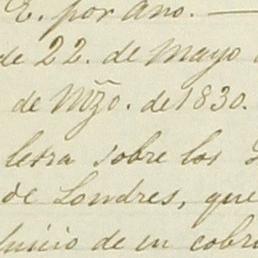 E. por año. —
de 22. de Mayo
de Mzo. de 1830.
letra sobre los
de Londres, que
de un cobr